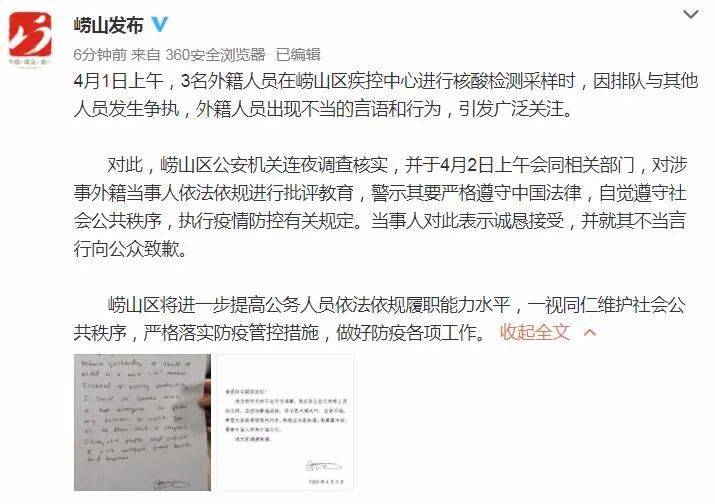 崂山发布
6分钟前 来自 360安全浏览器 已编辑
4月1日上午，3名外籍人员在崂山区疾控中心进行核酸检测采样时，因排队与其他
人员发生争执，外籍人员出现不当的言语和行为，引发广泛关注。
对此，崂山区公安机关连夜调查核实，并于4月2日上午会同相关部门，对涉
事外籍当事人依法依规进行批评教育，警示其要严格遵守中国法律，自觉遵守社
会公共秩序，执行疫情防控有关规定。当事人对此表示诚恳接受，并就其不当言
行向公众致歉。
崂山区将进一步提高公务人员依法依规履职能力水平，一视同仁维护社会公
共秩序，严格落实防疫管控措施，做好防疫各项工作。 收起全文
behavior yesterday. I should of
acted in a more civil manner.
Instead of yelling
I should
I hope everyone can
my
all to know that I respect
China, the people and culture.
I wish everyone good health
and happiness